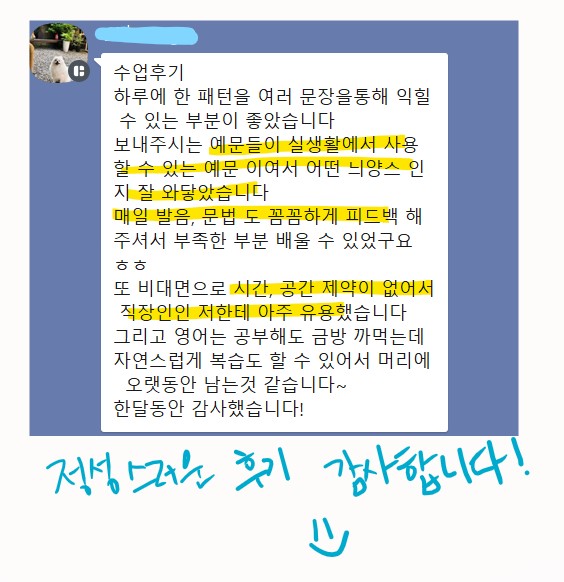 수업후기
하루에 한 패턴을 여러 문장을통해 익힐
수 있는 부분이 좋았습니다
보내주시는 예문들이 실생활에서 사용
할 수 있는 예문 이여서 어떤 늬양스 인
지 잘 와닿았습니다
매일 발음, 문법 도 꼼꼼하게 피드백 해
주셔서 부족한 부분 배울 수 있었구요
ㅎㅎ
또 비대면으로 시간, 공간 제약이 없어서
직장인인 저한테 아주 유용했습니다
그리고 영어는 공부해도 금방 까먹는데
자연스럽게 복습도 할 수 있어서 머리에
오랫동안 남는것 같습니다~
한달동안 감사했습니다!
정성스러운 후기 감사합니다!